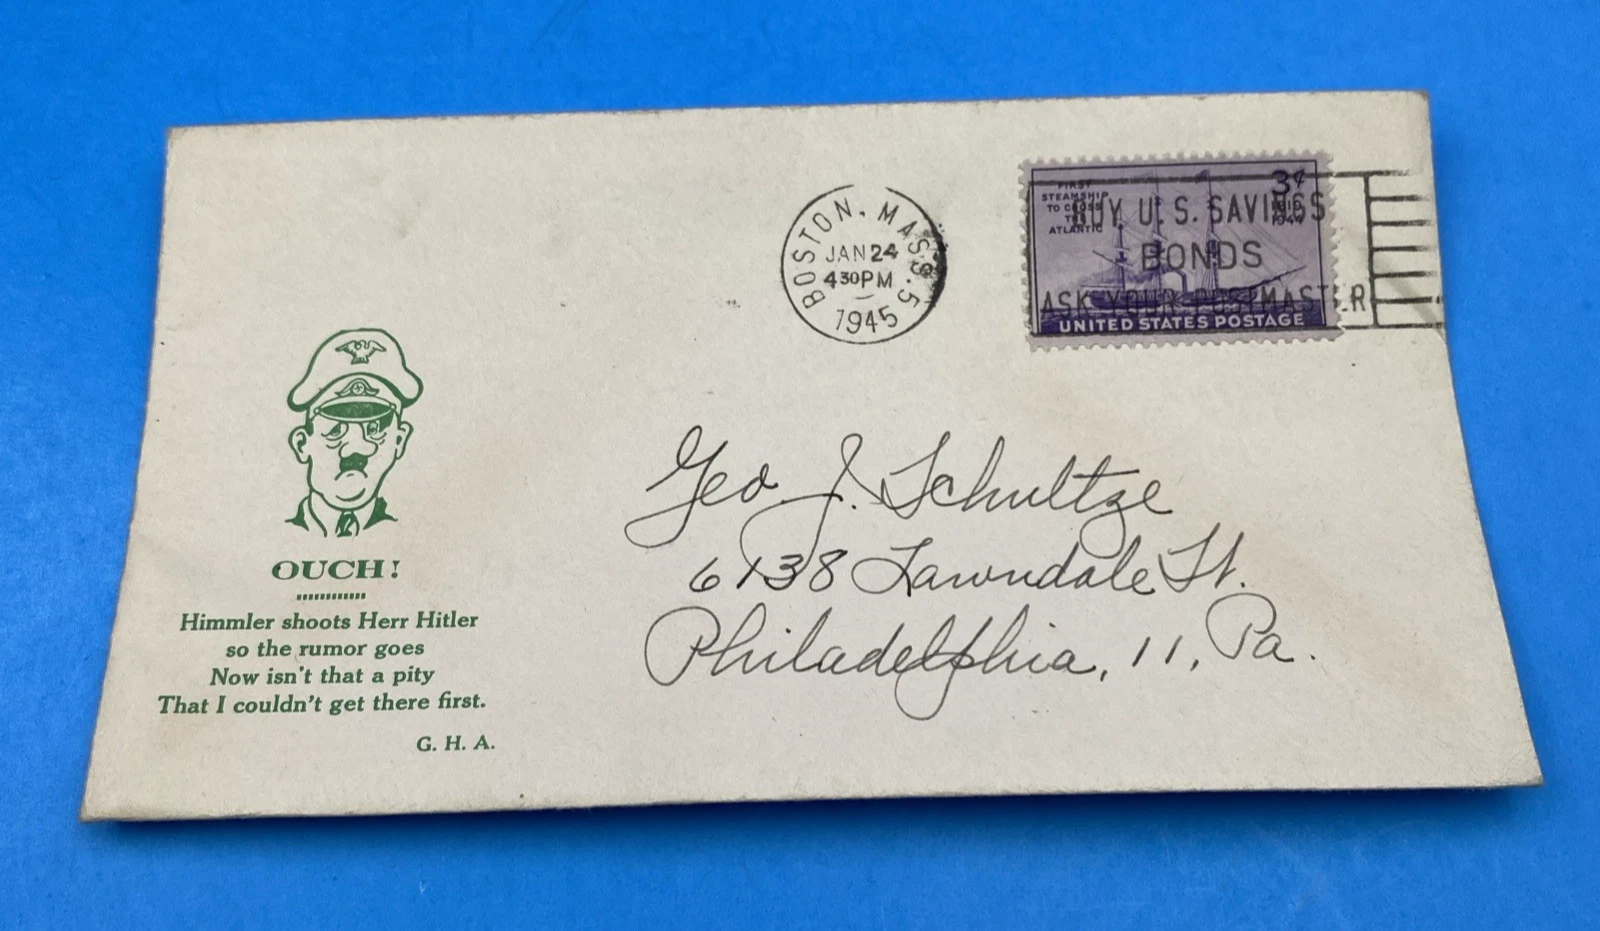 FIRST
STEAMSHIP
TO CROSS
THE
ATLANTIC
3¢
1819
1944
UNITED STATES POSTAGE
BUY U.S. SAVINGS
BONDS
ASK YOUR POSTMASTER
BOSTON, MASS. 5
JAN 24
430PM
1945
Geo J. Schultze
6138 Lawndale St.
Philadelphia, 11, Pa.
OUCH!
Himmler shoots Herr Hitler
so the rumor goes
Now isn't that a pity
That I couldn't get there first.
G. H. A.